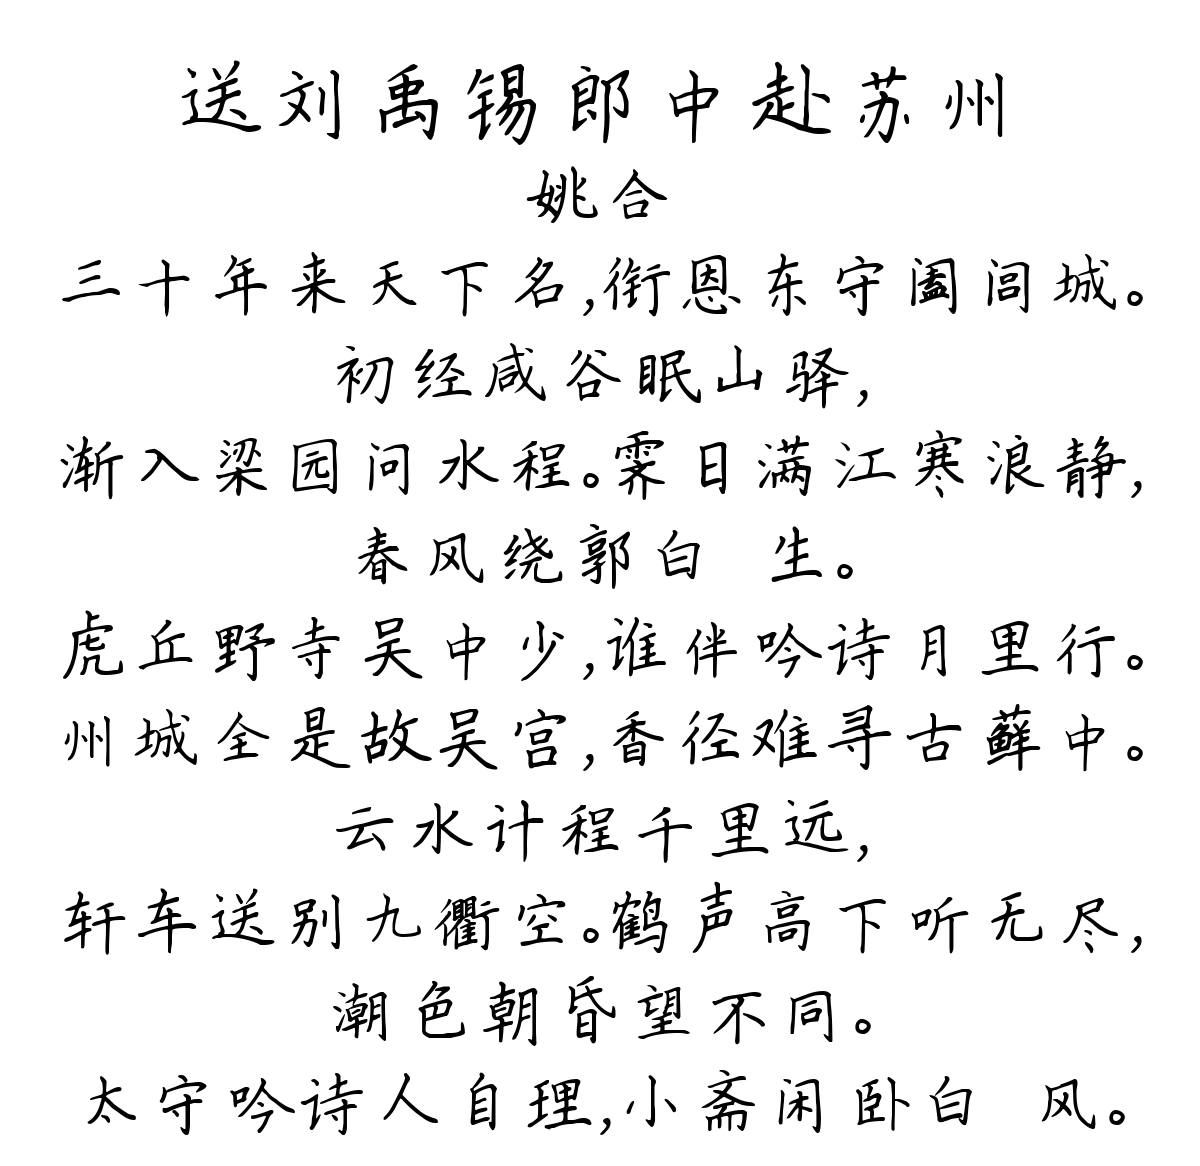 送刘禹锡郎中赴苏州
姚合
三十年来天下名,衔恩东守阖闾城。
初经咸谷眠山驿,
渐入梁园问水程。霁日满江寒浪静,
春风绕郭白 生。
虎丘野寺吴中少,谁伴吟诗月里行。
州城全是故吴宫,香径难寻古藓中。
云水计程千里远,
轩车送别九衢空。鹤声高下听无尽,
潮色朝昏望不同。
太守吟诗人自理,小斋闲卧白 风。